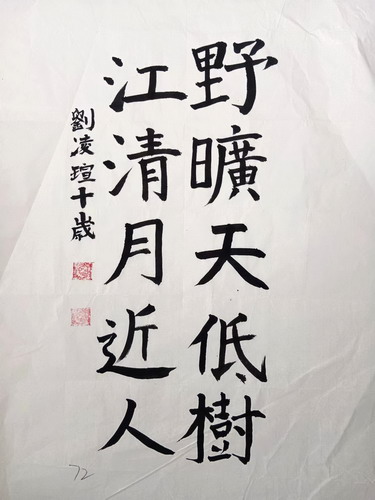 野曠天低樹
江清月近人
劉凌瑄十歲
72